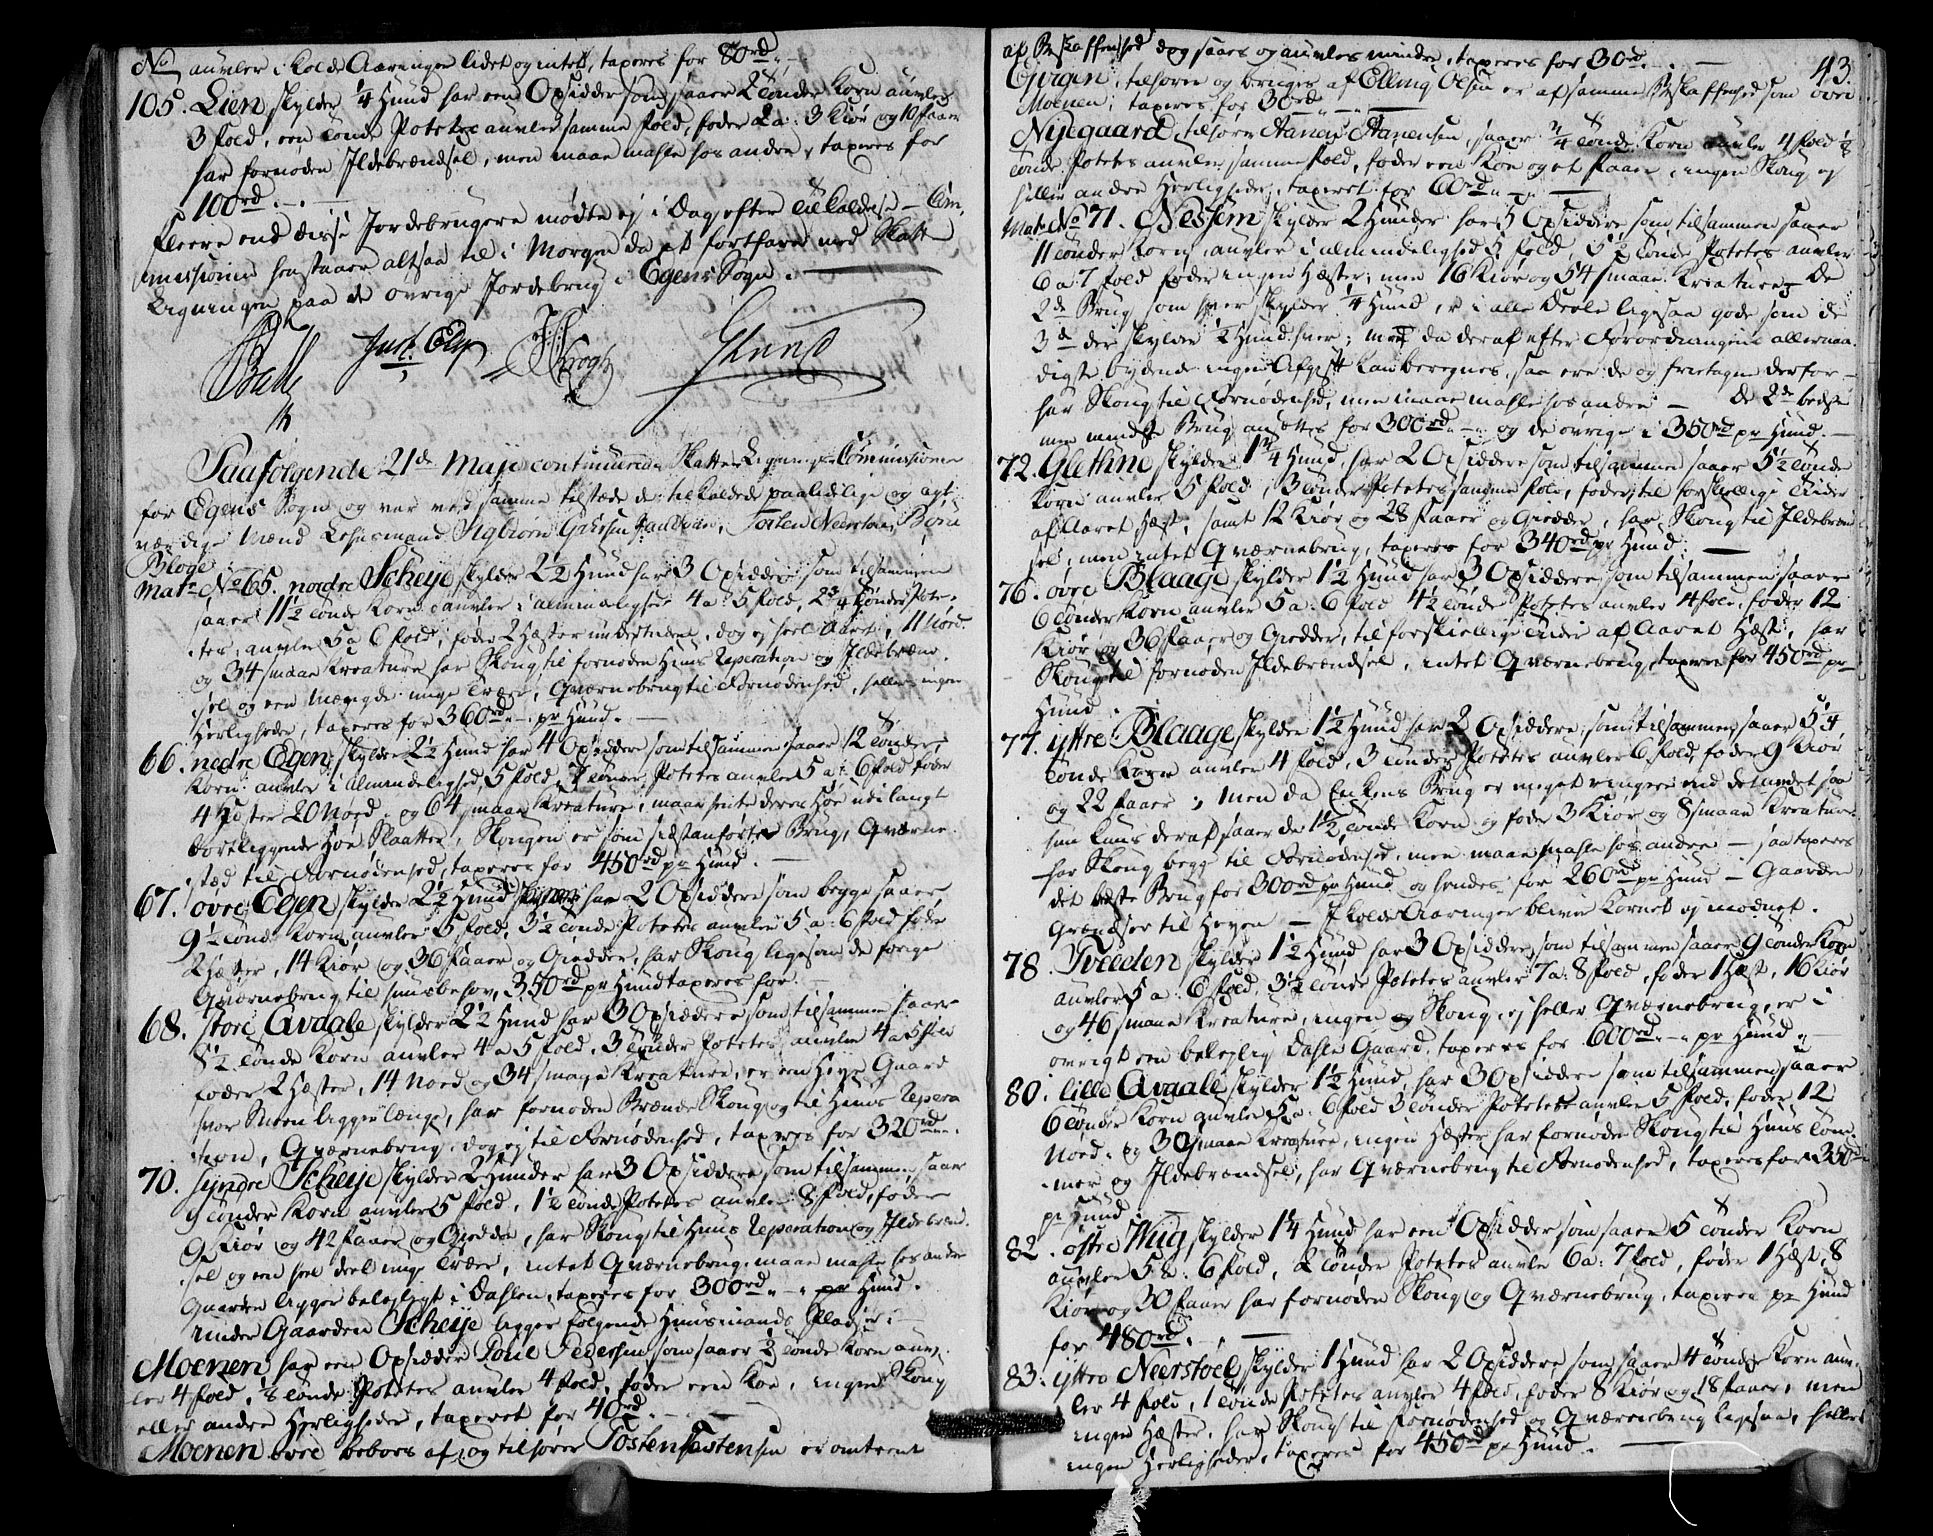 No auvler i kolde Aaeringer lidet og intet, taxeres for 80rd.
105. Lien skylder 1/4 Hund har een Opsidder som saaer 2 tønder Korn auvler
3 fold, een tønde Potetes auvler samme fold, føder 2 a 3 Kiør og 10 faaer
har fornøden Ildebrændsel, men maae mahle hos andre, taxeres for
100rd.
Fleere end disse Jordebrugere mødte ej i Dag efter Tilkaldelse – Com-
missionen henstaaer altsaa til i Morgen da at fortfare med Skatte
Ligningen paa de øvrige Jordebrug i Egens Sogn.
Balle Just Ely Krogh Glund
Paafølgende 21de Maji continuerede Skatte Lignings Commissionen
for Egens Sogn og var ved samme tilstæde de tilkaldede paalidelige og agt-
værdige Mænd Lehnsmand Sigbiørn, Torsten Neerstoen, Biørn
Bloge.
Matr. No 65. nordre Scheije skylder 2 1/2 Hund har 3 Opsiddere som tilsammen
saaer 11 1/2 tønde Korn auvler i almindelighed 4 a 5 fold, 2 3/4 tønder Pote-
tes, auvler 5 a 6 fold, føder 2 Hæster, dog ej heel Aaret, 11 Nød.
og 34 smaae Kreature har Skoug til fornøden Huus Reperation og Ildebrænd-
sel og een Mængde unge Træer, Qværnebrug til Fornødenhed, heller ingen
Herligheder, taxeres for 360rd. pr Hund.
66. nedre Egen skylder 2 1/2 Hund har 4 Opsiddere som tilsammen saaer 12 tønder
Korn auvler i almindelighed 5 fold, 7 tønder Potetes auvler 5 a 6 fold føder
4 Hæster 20 Nød, og 64 smaae Kreature, maae hente deres Høe udi langt
bortliggende Høe Slaatter, Skougen er som sidstanførte Brug, Qværne-
stæd til Fornødenhed, taxeres for 450rd pr Hund.
67. øvre Egen skylder 2 1/2 Hund har 2 Opsiddere som begge saaer
9 1/2 tønde Korn auvler 5 fold, 3 1/2 tønde Potetes auvler 5 a 6 fold føde
2 Hæster, 14 Kiør og 36 faaer og Gieder, har Skoug ligesom de forige
Qværnebrug til huusbehov, 350rd pr Hund taxeres for.
68. store Avdale skylder 2 1/2 Hund har 3 Opsiddere som tilsammen saaer
8 1/2 tønde Korn auvler 4 a 5 fold, 3 tønder Potetes auvler 4 a 5 fold
føder 2 Hæster, 14 Nød og 34 smaae Kreature, er een Heye Gaard
hvor Sneen ligger længe, har fornøden Brænde Skoug og til Huus Repera-
tion, Qværnebrug dog ej til Fornødenhed, taxeres for 320rd.
70. syndre Scheije skylder 2 Hunder har 3 Opsiddere som tilsammen saaer
9 tønder Korn auvler 5 fold, 1 1/2 tønde Potetes auvler 8 fold, føder
9 Kiør og 42 faaer og Gieder, har Skoug til Huus Reperation og Ildebrænd-
sel og een heel deel unge Træer, intet Qværnebrug, maae mahle hos andre
Gaarden ligger beleyligt i Dahlen, taxeres for 300rd. pr Hund.
Under Gaarden Scheije ligger følgende Huusmands Pladser:
Moenen har een Opsidder Poul Pedersen som saaer 1/2 tønde Korn auv-
ler 4 fold, 1/8 tønde Potetes auvler 4 fold, føder een Koe, ingen Skoug
eller andre Herligheder, taxeret for 40rd.
Moenen øvre beboes af og tilhører Tosten Tostensen er omtrent
43.
af Beskaffenhed dog saaes og auvles mindre, taxeres for 30rd.
Gurgen, tilhører og bruges af Elling Olsen er af samme Beskaffenhed som øvre
Moenen, taxeres for 30rd.
Nijegaard, tilhører Aanen Aanensen, saaer 3/4 tønde Korn auvler 4 fold 1/8
tønde Potetes auvler samme fold, føder een Koe og et faaer, ingen Skoug ej
heller andre Herligheder, taxeret for 60rd.
Matr. No 71. Nessem skylder 2 Hunder har 5 Opsiddere som tilsammen saaer
11 tønder Korn auvler i almindelighed 5 fold, 5 1/2 tønde Potetes auvler
6 a 7 fold føder ingen Hæster, men 16 Kiør og 54 smaae Kreature. De
2de Brug som hver skylder 1/4 Hund, er i alle Deele ligesaa gode som de
3de der skylder 1/2 Hund hver; men da deraf efter Forordningens allernaa-
digste bydende ingen Afgift kan beregnes, saa ere de og frietagne derfor –
har Skoug til Fornødenhed, men maae mahle hos andre – De 2de bedste
men mindste Brug ansættes for 300rd. og de øvrige i 350rd pr Hund.
72. Glethne skylder 1 1/4 Hund, har 2 Opsiddere som tilsammen saaer 5 1/2 tønde
Korn auvler 5 fold, 3 tønder Potetes samme fold, føder til forskiellige Tider
af Aaret Hæst, samt 12 Kiør og 28 faaer og Gieder, har Skoug til Ildebrænd-
sel, men intet Qværnebrug, taxeres for 340rd pr Hund.
76. øvre Blaage skylder 1 1/2 Hund har 3 Opsiddere som tilsammen saaer
6 tønder Korn auvler 5 a 6 fold 4 1/2 tønde Potetes auvler 4 fold, føder 12
Kiør og 36 faaer og Gieder, til forskiellige Tider af Aaret Hæst, har
Skoug til fornøden Ildebrændsel, intet Qværnebrug, taxeres for 450rd pr
Hund.
77. yttre Blaage skylder 1 1/2 Hund har 2 Opsiddere som tilsammen saaer 5 1/4
tønde Korn auvler 4 fold, 3 tønder Potetes auvler 6 fold, føder 9 Kiør
og 22 faaer; Men da Enkens Brug er meget ringere end det andet saa
hun kuns deraf saaer de 1 1/2 tønde Korn og føde 3 Kiør og 8 smaae Kreature.
har Skoug begge til Fornødenhed, men maae mahle hos andre – saa taxeres
det bæste Brug for 300rd pr Hund og hendes for 260rd pr Hund – Gaarden
Grændser til Heyen – I kolde Aaringer bliver Kornet ej modnet.
78. Tveeden skylder 1 1/2 Hund har 3 Opsiddere som tilsammen saaer 9 tønder Korn
auvler 5 a 6 fold, 3 1/2 tønde Potetes auvler 7 a 8 fold, føder 1 Hæst, 16 Kiør
og 46 smaae Kreature, ingen Skoug, ej heller Qværnebrug, er i
øvrigt een beleylig Dahle Gaard, taxeres for 600rd. pr Hund.
80. lille Avdale skylder 1 1/2 Hund, har 3 Opsiddere som tilsammen saaer
6 tønder Korn auvler 5 a 6 fold 3 tønder Potetes auvler 5 fold, føder 12
Nød. og 30 smaae Kreature, ingen Hæster har fornøden Skoug til Huus Tøm-
mer og Ildebrændsel, har Qværnebrug til Fornødenhed, taxeres for 350rd
pr Hund.
82. østre Wiig skylder 1 1/4 Hund har een Opsidder som saaer 5 tønder Korn
auvler 5 a 6 fold, 2 tønder Potetes auvler 6 a 7 fold, føder 1 Hæst, 8
Kiør og 30 faaer har fornøden Skoug og Qværnebrug, taxeres pr Hund
for 480rd.
83. yttre Neerstoel skylder 1 Hund har 2 Opsiddere som saaer 4 tønder Korn auv-
ler 4 fold, 1 tønde Potetes auvler 4 fold, føder 8 Kiør og 18 faaer, men
ingen Hæster, har Skoug til Fornødenhed og Qværnebrug ligesaa, heller
ingen Herligheder, taxeres for 450rd pr Hund.